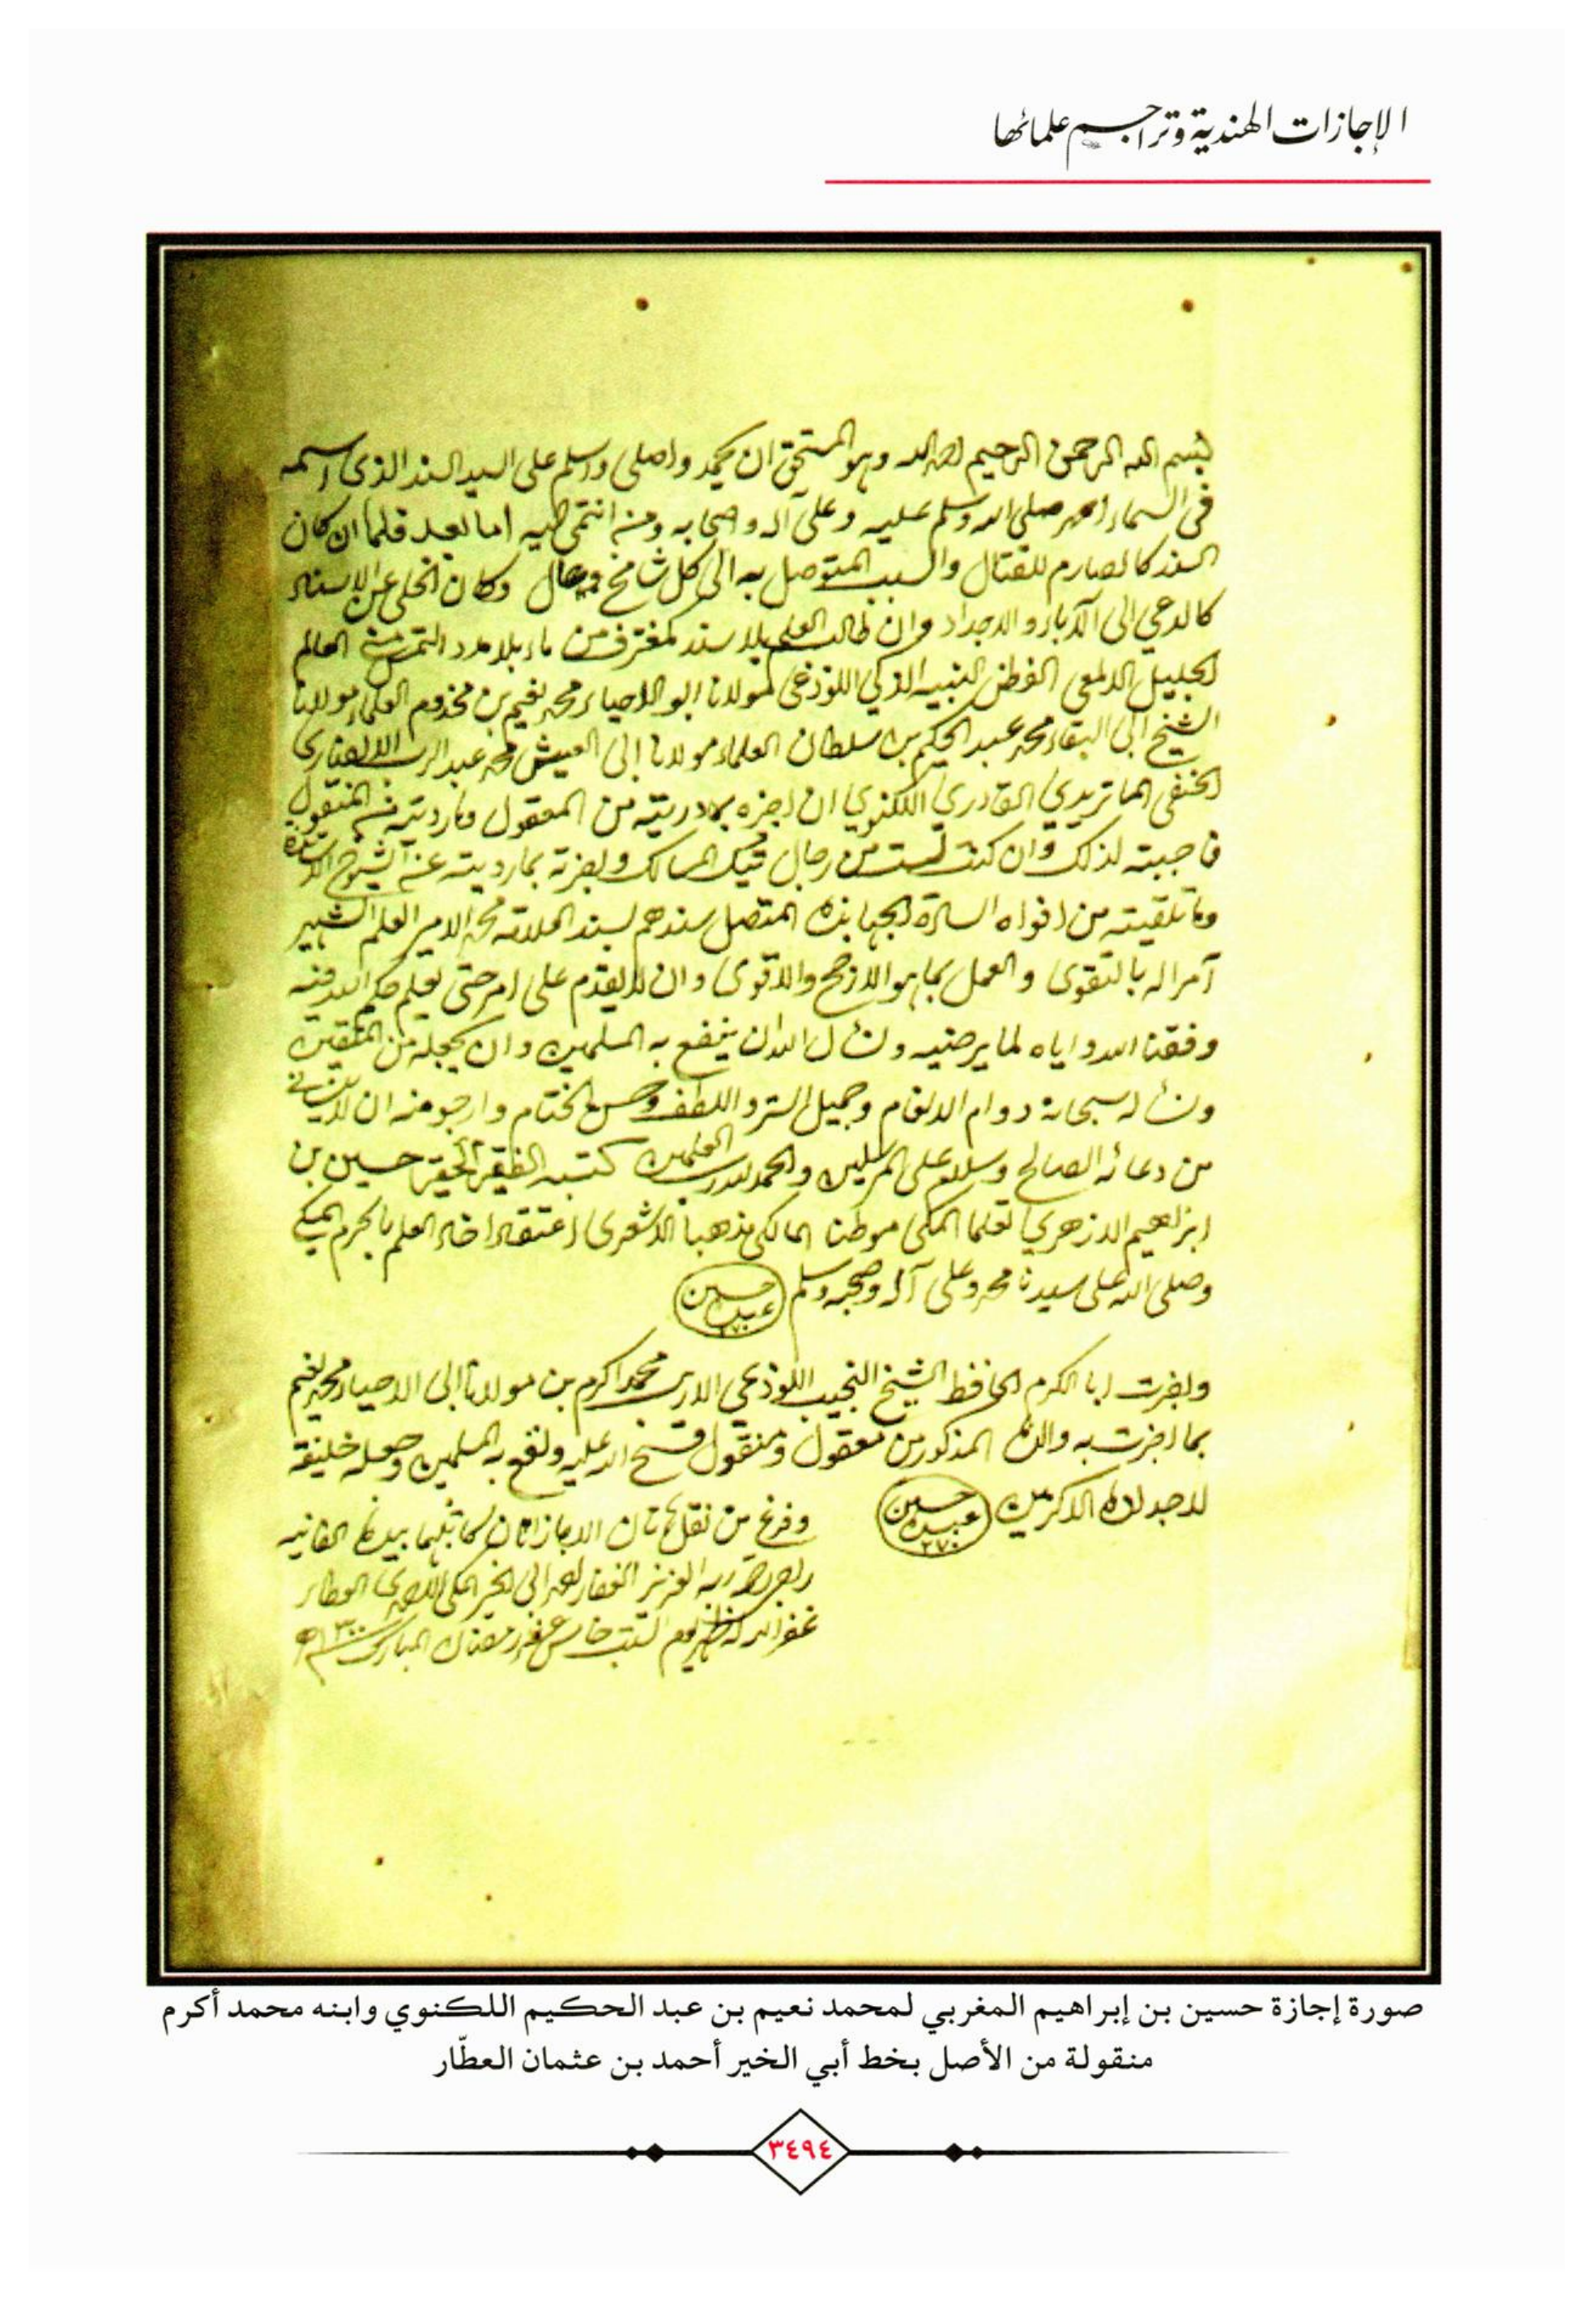 الإجازات الهندية وتراجم علمائها
بسم الله الرحمن الرحيم احمد الله وهو المستحق ان يحمد واصلي واسلم على السيد السند الذي اسمه
في السماء احمد صلى الله وسلم عليه وعلى آله وصحابه ومن انتمى اليه اما بعد فلما ان كان
السند كالصارم للقتال والسبب المتوصل به الى كل شامخ وعال وكان الخلي عن الاسناد
كالدعي الى الآباء والاجداد وان طالب العلم بلا سند كمغترف من ماء بلا مدد التمس مني العالم
الجليل الالمعي الفطن النبيه الذكي اللوذعي مولانا ابو الاحياء محمد نعيم بن مخدوم العلماء مولانا
الشيخ ابي البقاء محمد عبد الحكيم بن سلطان العلماء مولانا ابي العيش محمد عبد الرب الانصاري
الحنفي الماتريدي القادري اللكنوي ان اجزه بما دريته من المعقول وما رويته من المنقول
فاجبته لذلك وان كنت لست من رجال تيك المسالك واجزته بما رويته عن الشيوخ الاساتذة
وما تلقيته من افواه السادة الجهابذة المتصل سندهم بسند العلامة محمد الامير العلم الشهير
آمرا له بالتقوى والعمل بما هو الارجح والاقوى وان لا يقدم على امر حتى يعلم حكم الله فيه
وفقنا الله واياه لما يرضيه ونسأل الله ان ينفع به المسلمين وان يجعله من المتقين
ونسأله سبحانه دوام الانعام وجميل الستر واللطف وحسن الختام وارجو منه ان لا ينساني
من دعائه الصالح وسلام على المرسلين والحمد لله رب العلمين كتبه الفقير الحقير حسين بن
ابراهيم الازهري تعلما المكي موطنا المالكي مذهبا الاشعري اعتقادا خادم العلم بالحرم المكي
وصلى الله على سيدنا محمد وعلى آله وصحبه وسلم
عبده حسين
٢٧٠
واجزت ابا الكرم الحافظ الشيخ النجيب اللوذعي محمد اكرم بن مولانا ابي الاحياء محمد نعيم
بما اجزت به والده المذكور من معقول ومنقول فتح الله عليه ونفع به المسلمين وجعله خليفة
لاجداده الاكرمين
عبده حسين
٢٧٠
وفرغ من نقل هاتان الاجازاتان بيده الفانيه
ربه العزيز الغفار احمد ابي الخير المكي الاحمدي العطار
غفر الله له يوم السبت خامس عشر رمضان المبارك ١٣٠٠
صورة إجازة حسين بن إبراهيم المغربي لمحمد نعيم بن عبد الحكيم اللكنوي وابنه محمد أكرم
منقولة من الأصل بخط أبي الخير أحمد بن عثمان العطّار
٣٤٩٤